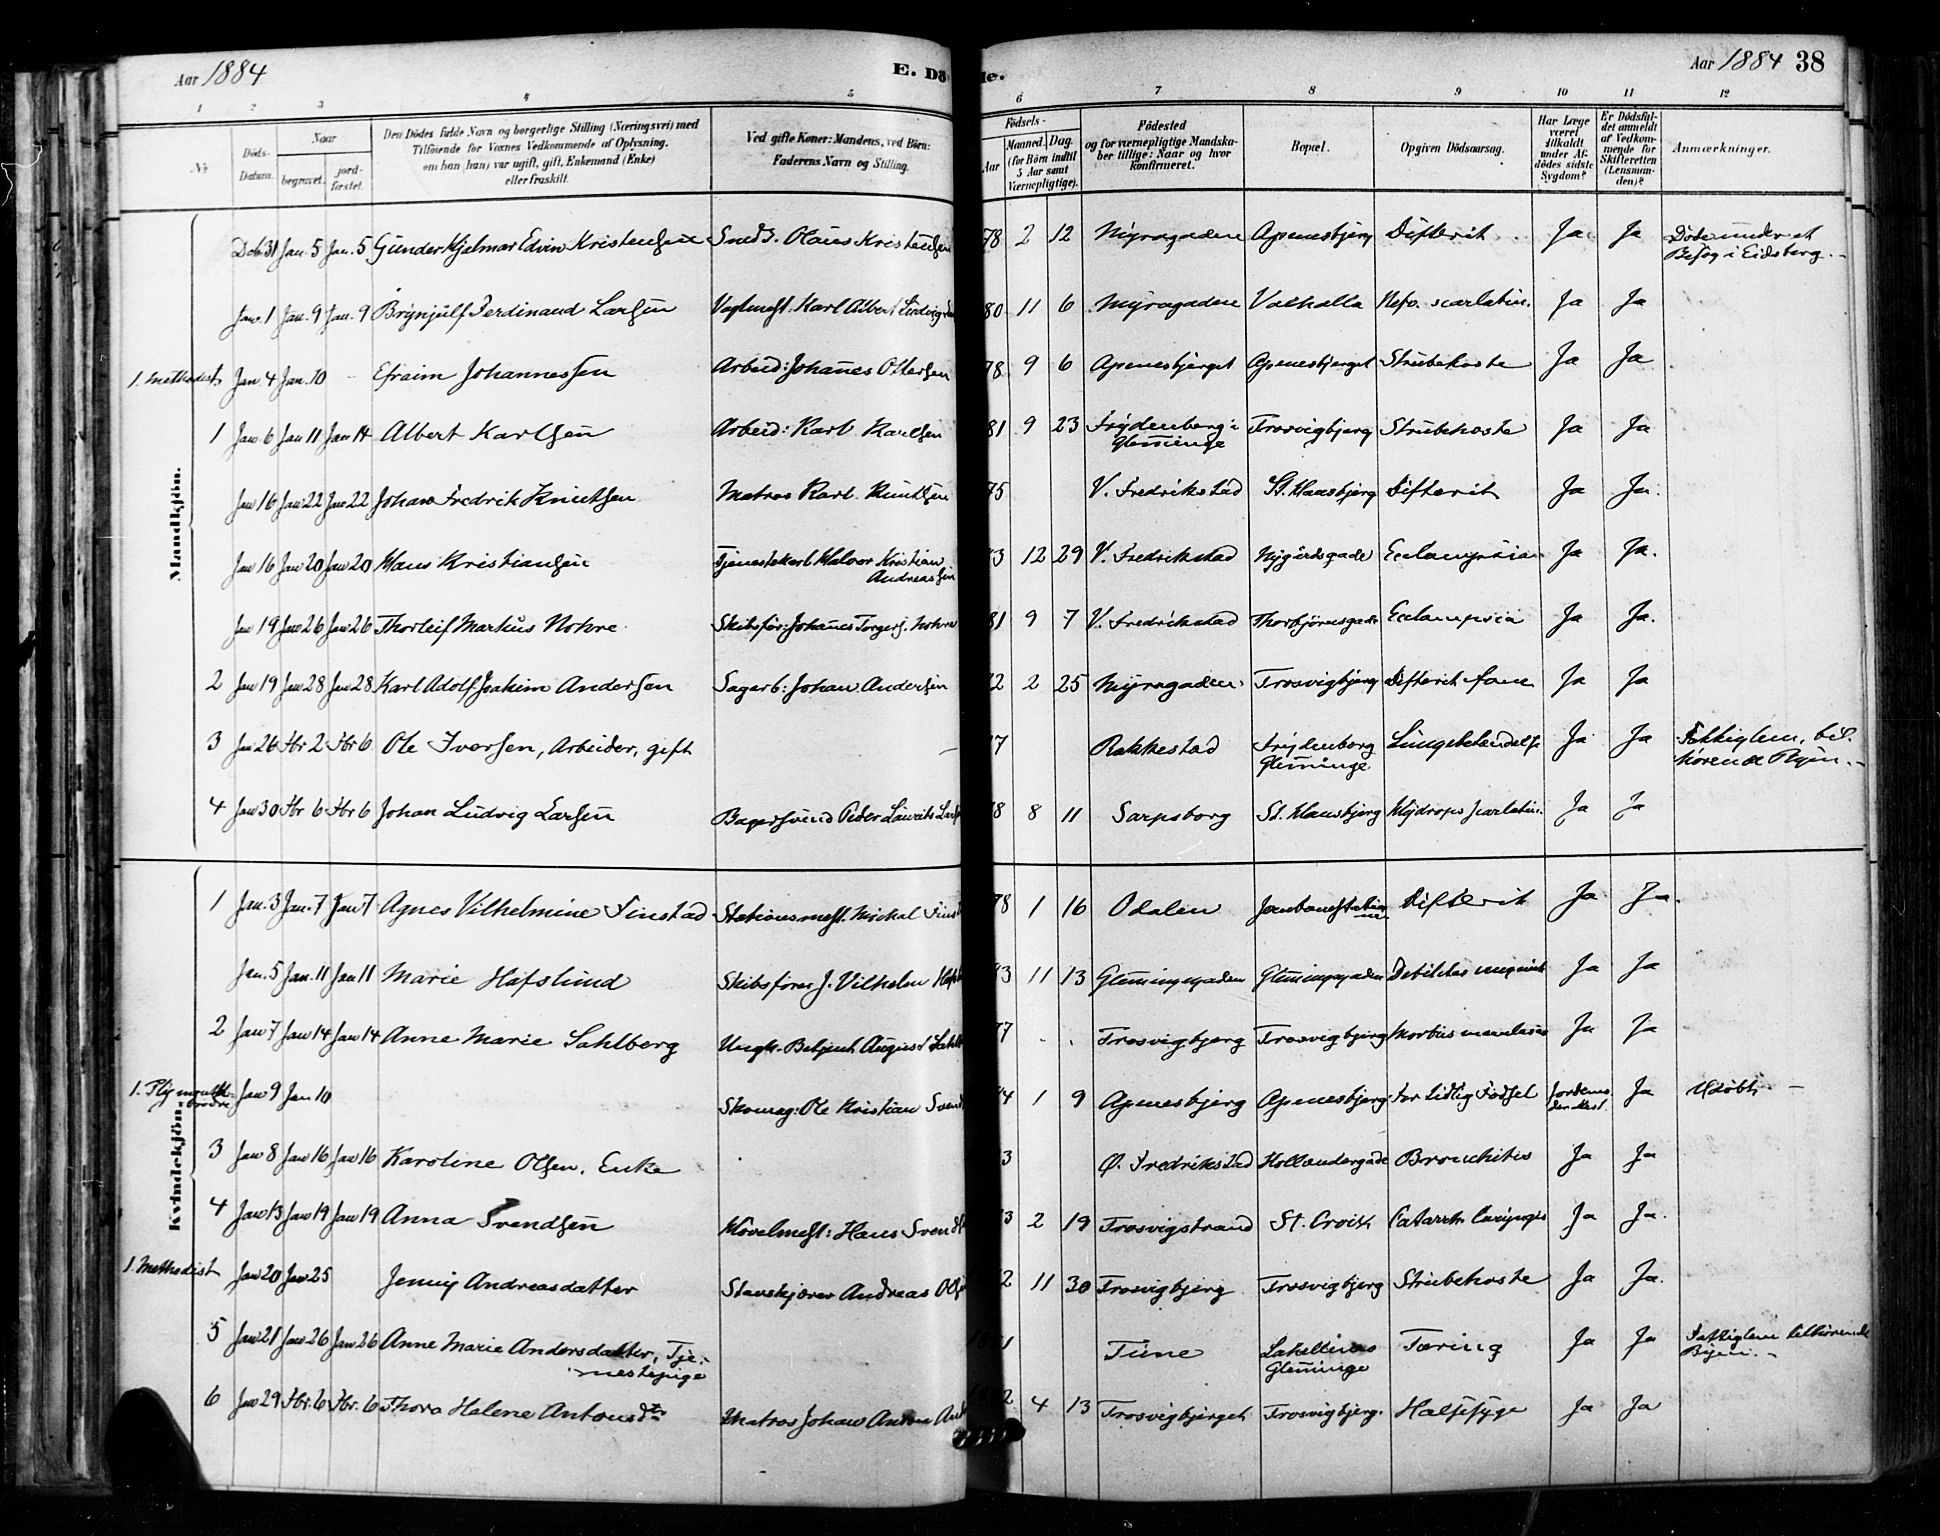 Aar 1884
E. Dö
de.
Aar 1884 38
1 2 3 4 5 6 7 8 9 10 11 12
No
Döds-Datum.
Naar
begravet. jordfæstet.
Den Dödes fulde Navn og borgerlige Stilling (Næringsvei) med
Tilföiende for Voxnes Vedkommende af Oplysning,
om han (hun) var ugift, gift, Enkemand (Enke)
eller fraskilt.
Ved gifte Koner: Mandens, ved Börn:
Faderens Navn og Stilling.
Födsels-
Aar Maaned. Dag.
(for Börn indtil
5 Aar samt
Værnepligtige).
Födested
og for værnepligtige Mandska-
ber tillige: Naar og hvor
konfirmeret.
Bopæl.
Opgiven Dödsaarsag.
Har Læge
været
tilkaldt
under Af-
dödes sidste
Sygdom?
Er Dödsfal-
det anmeldt
af Vedkom-
mende for
Skifteretten
(Lensman-
den)?
Anmærkninger.
Mandkjön.
Dcb. 31 Jan. 5 Jan. 5 Gunder Hjelmar Edvin Kristensen Sneds. Olaus Kristensen 78 2 12 Myragaden Apenesbjerg Difterit Ja Ja Döde under et
Besög i Eidsberg.
Jan. 1 Jan. 9 Jan. 9 Brynjulf Ferdinand Larsen Vagtmest. Karl Albert Ludvig 80 11 6 Myragaden Valhalla Nefr. scarlatin. Ja Ja
1. Methodist Jan. 4 Jan. 10 Efraim Johannessen Arbeid: Johanes Ottersen 78 9 6 Apenesbjerget Apenesbjerget Strubehoste Ja Ja
1 Jan 6 Jan 11 Jan 14 Albert Karlsen Arbeid: Karl Karlsen 81 9 23 Frydenberg i
Glemminge Trosvigbjerg Strubehoste Ja Ja
Jan 16 Jan 22 Jan 22 Johan Fredrik Knutsen Matros Karl Knutsen 75 V. Fredrikstad St. Hansbjerg Difterit Ja Ja.
Jan 16 Jan 20 Jan 20 Hans Kristiansen Tjenestekarl Halvor Kristian
Andreassen 3 12 29 V. Fredrikstad Nygårdsgade Eclampsia Ja Ja.
Jan 19 Jan 26 Jan 26 Thorleif Martius Nohre Skibsför: Johanes Torgers. Nohre 81 9 7 V. Fredrikstad Thorbjörnsgade Eclampsia Ja Ja.
2 Jan 19 Jan 28 Jan 28 Karl Adolf Joakim Andersen Sagarb: Johan Andersen 2 2 25 Myragaden Trosvigbjerg Difterit Ja Ja
3 Jan 26 Fbr 2 Fbr 6 Ole Iversen, Arbeider, gift — 7 Rakkestad Frydenborg
Glemminge Lungebetændelse Ja Ja Fattiglem, til-
hörende Byen.
4 Jan 30 Fbr 6 Fbr 6 Johan Ludvig Larsen Bagersvend Peder Laurits 8 8 11 Sarpsborg St. Hansbjerg Hydrops scarlatin. Ja Ja
Kvindekjön.
1 Jan. 3 Jan. 7 Jan 7 Agnes Vilhelmine Finstad Stationsmest. Mickal 78 1 16 Odalen Jernbanestation Difterit Ja Ja.
Jan. 5 Jan. 11 Jan 11 Marie Hafslund Skibsförer J. Vilhelm 3 11 13 Glemmingegaden Glemmingegaden Debilitas Ja Ja
2 Jan 7 Jan 14 Jan 14 Anne Marie Sahlberg Betjent August 77 Trosvigbjerg Trosvigbjerg Morbus Ja Ja
1. Plymouth-
brödre Jan 9 Jan 10 Skomag: Ole Kristian 4 1 9 Apenesbjerg Apenesbjerg For tidlig Födsel Jordemo Ja Udöbt
3 Jan 8 Jan 16 Jan 16 Karoline Olsen, Enke 3 Ø. Fredrikstad Hollændergade Bronchitis Ja Ja
4 Jan 13 Jan 19 Jan 19 Anna Svendsen Hövelmest: Hans 3 2 19 Trosvigstrand St. Croix Catarrh. Ja Ja.
1. Methodist Jan 20 Jan 25 Jenny Andreasdatter Andreas 2 11 30 Trosvigbjerg Trosvigbjerg Strubehoste Ja Ja.
5 Jan 21 Jan 26 Jan 26 Anne Marie Andersdatter, Tje-
nestepige 1 Tune
Glemminge Tæring Ja Ja Fattiglem tilhörende
Byen.
6 Jan 29 Fbr. 6 Fbr. 6 Thora Helene Antonsdtr Matros Johan Anton 2 4 13 Trosvigbjerget Trosvigbjerg. Halssyge Ja Ja